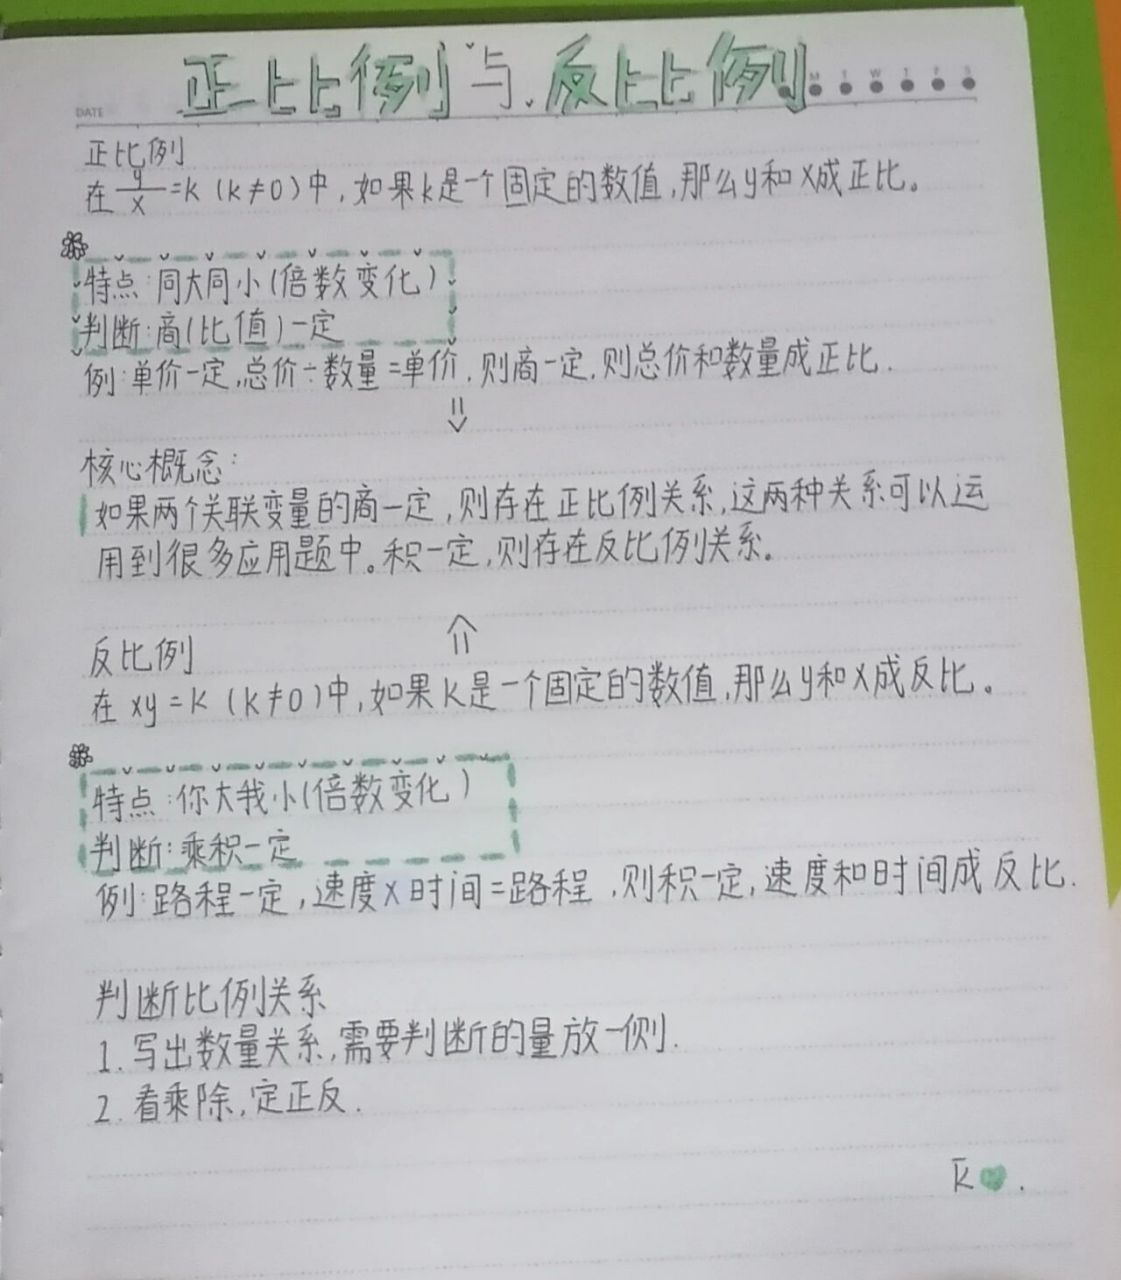 正比例与反比例
DATE
M T W T F S
正比例
在 y/x =k (k≠0)中,如果k是一个固定的数值,那么y和x成正比。
特点:同大同小(倍数变化)
判断:商(比值)一定
例:单价一定,总价÷数量=单价,则商一定,则总价和数量成正比.
核心概念:
如果两个关联变量的商一定,则存在正比例关系,这两种关系可以运
用到很多应用题中。积一定,则存在反比例关系。
反比例
在 xy=k (k≠0)中,如果k是一个固定的数值,那么y和x成反比。
特点:你大我小(倍数变化)
判断:乘积一定
例:路程一定,速度×时间=路程,则积一定,速度和时间成反比.
判断比例关系
1.写出数量关系,需要判断的量放一侧.
2.看乘除,定正反.